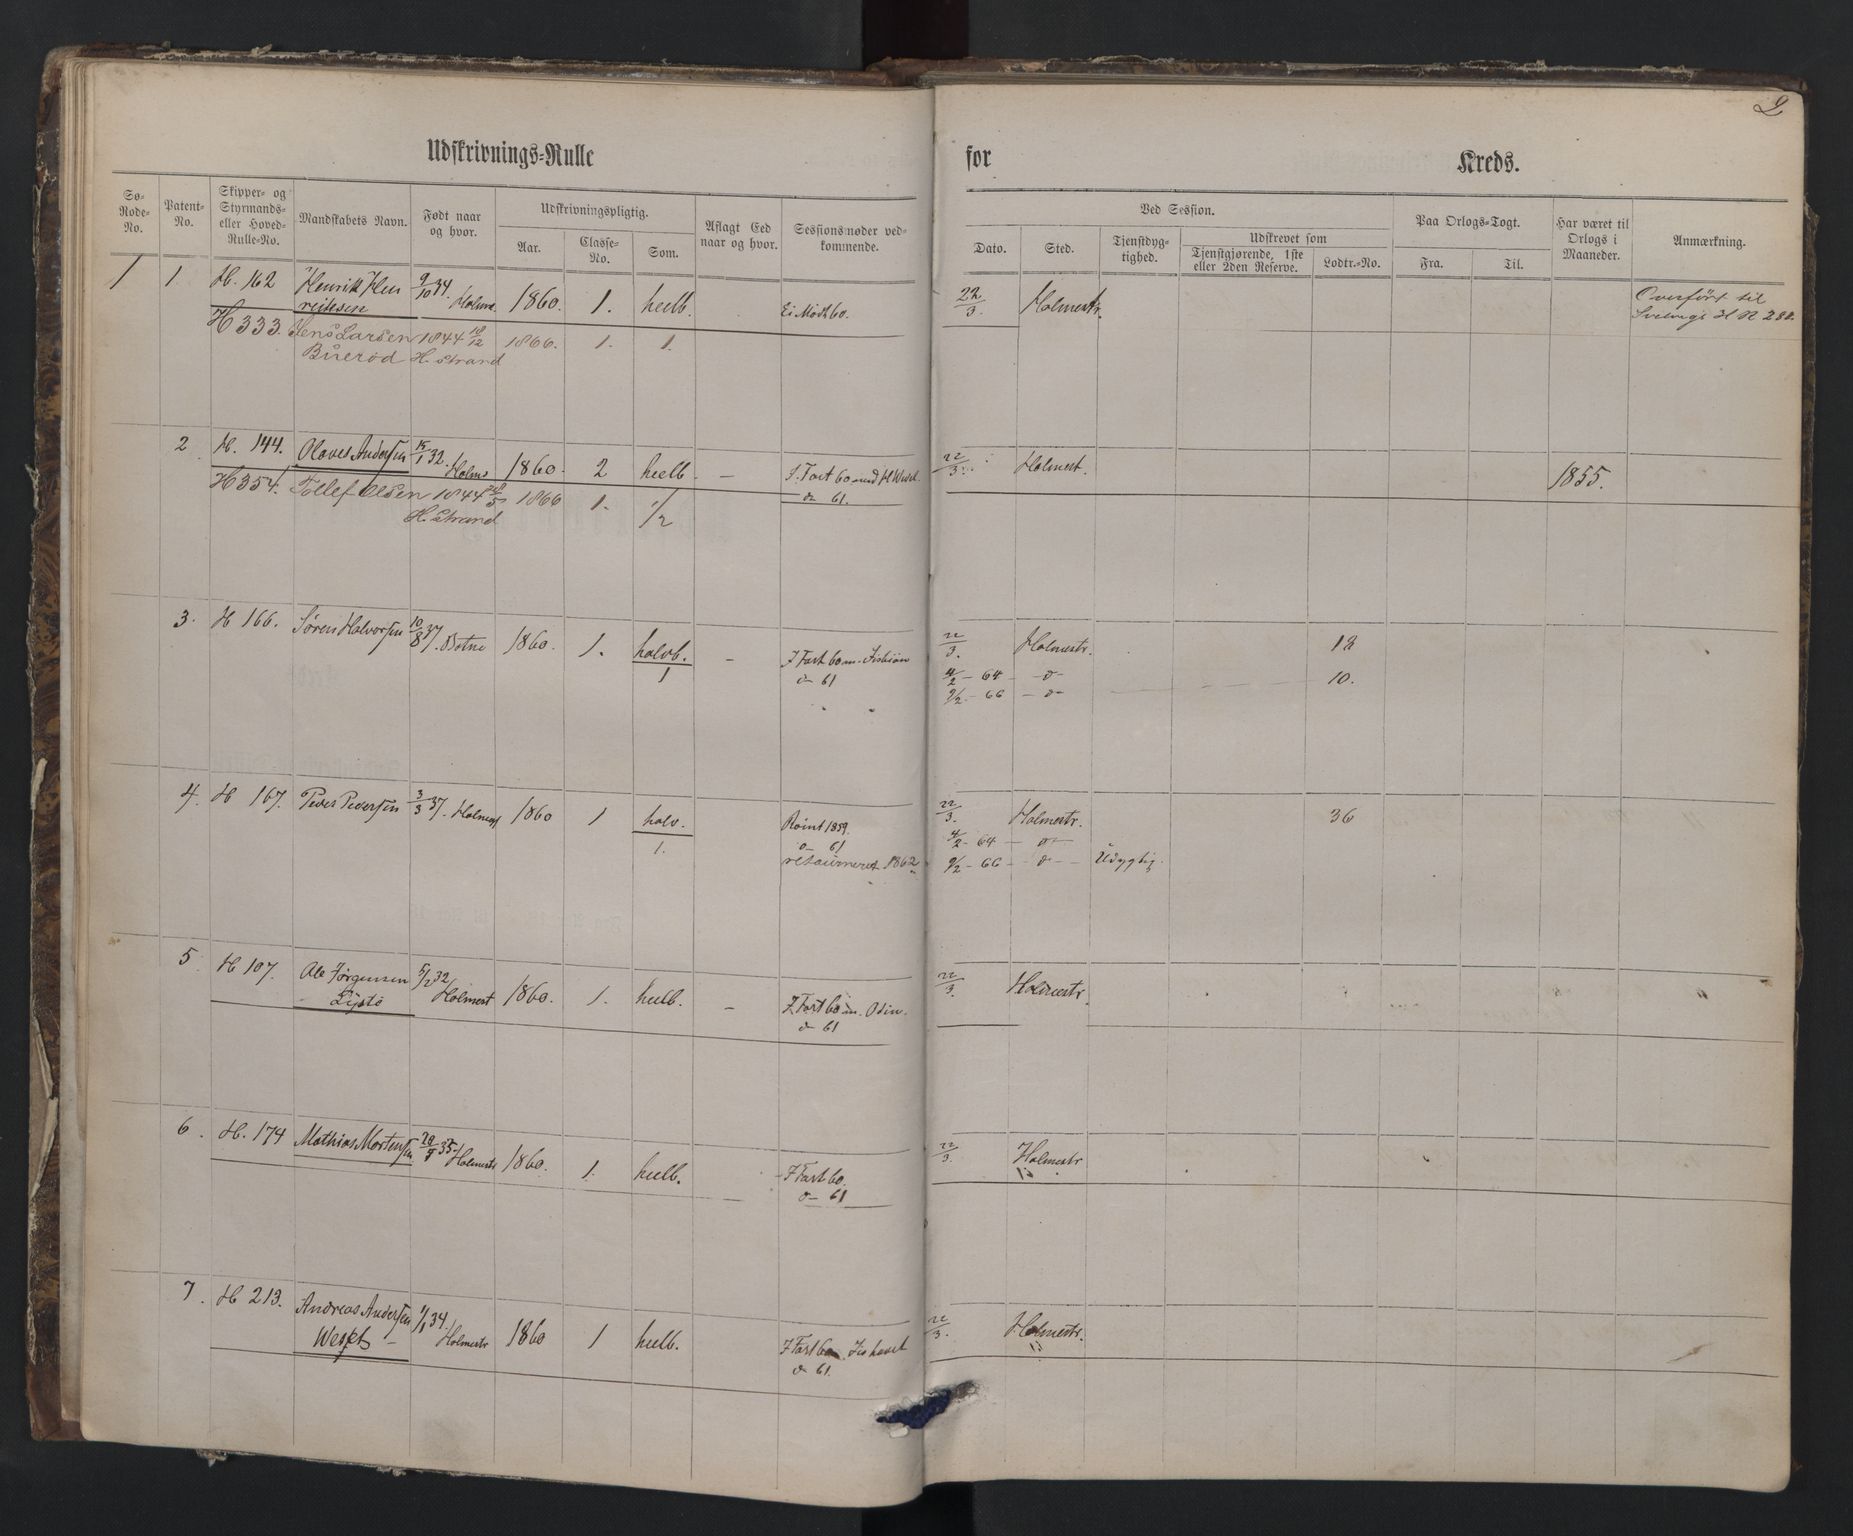 2
Udskrivnings-Rulle for Kreds.
Sø-Rode-No. Patent-No. Skipper- og Styrmands- eller Hoved-Rulle-No. Mandskabets Navn. Født naar og hvor. Udskrivningspligtig. Aar. Classe-No. Som. Aflagt Eed naar og hvor. Sessionsmøder vedkommende.
Ved Session. Dato. Sted. Tjenstdygtighed. Udskrevet som Tjenstgjørende, 1ste eller 2den Reserve. Lodtr.-No. Paa Orlogs-Togt. Fra. Til. Har været til Orlogs i Maaneder. Anmærkning.
1 1 H. 162 Henrik Hen 9/10 34. 22/3. Holmestr. Overført til
reiksen Holms. 1860. 1. heelb. Ei Mødt 60. Svelvigs H N 280.
H 333 Jens Larsen 1844 18/12 1866. 1. 1.
Buerød H. strand
2 H. 144. Olaves Andersen 15/1 32. Holms 1860. 2 heelb. – I Fart 60 med 22/3. Holmest. 1855.
H 354. Tollef Olsen 1844 28/5 1866 1. 1/2 – d– 61.
H. Strand
3. H 166. Søren Halvorsen 10/8 37. Botne 1860. 1. halvb. – I Fart 60 m. 22/3. Holmestr. 18
1 d– 61 4/2 – 64 – –d– 10.
9/2 – 66 – d–
4. H 167. Peder Pedersen 3/3 37. Holmest 1860 1 halv. Rømt 1859. 22/3. Holmestr. 36
1. d– 61 4/2 – 64 – d–
retourneret 1862 9/2 – 66 – d– Udygtig.
5 H 107. Ole Jørgensen 5/2 32 Holmest 1860. 1. heelb. – I Fart 60 m. Odin. 22/3. Holmestr.
d– 61
6. H. 174 Mathias Mortensen 35 Holmestr 1860. 1. heelb. – I Fart 60. 22/3. Holmestr
d– 61
7. H 213. Andreas Andersen 34. Holmestr 1860 1 heelb. I Fart 60 m. Ishavet 22/3. Holmestr.
d– 61.